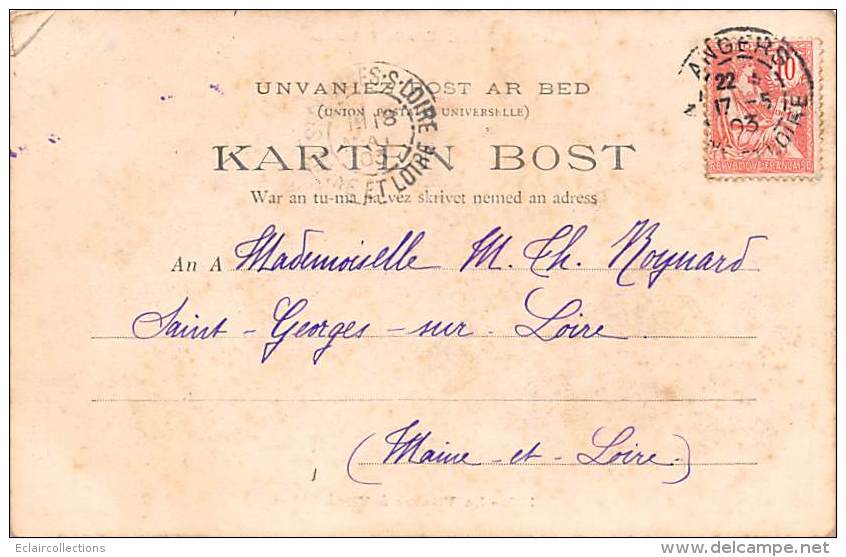 ANGERS
22
17 -5
03
10
REPUBLIQUE FRANÇAISE
UNVANIEZ POST AR BED
(UNION POSTALE UNIVERSELLE)
S-LOIRE
18
03
ET LOIRE
KARTEN BOST
War an tu-ma na vez skrivet nemed an adress
An A Mademoiselle M. Th. Roynard
Saint-Georges-sur-Loire.
(Maine-et-Loire.)
Eclaircollections
www.delcampe.net